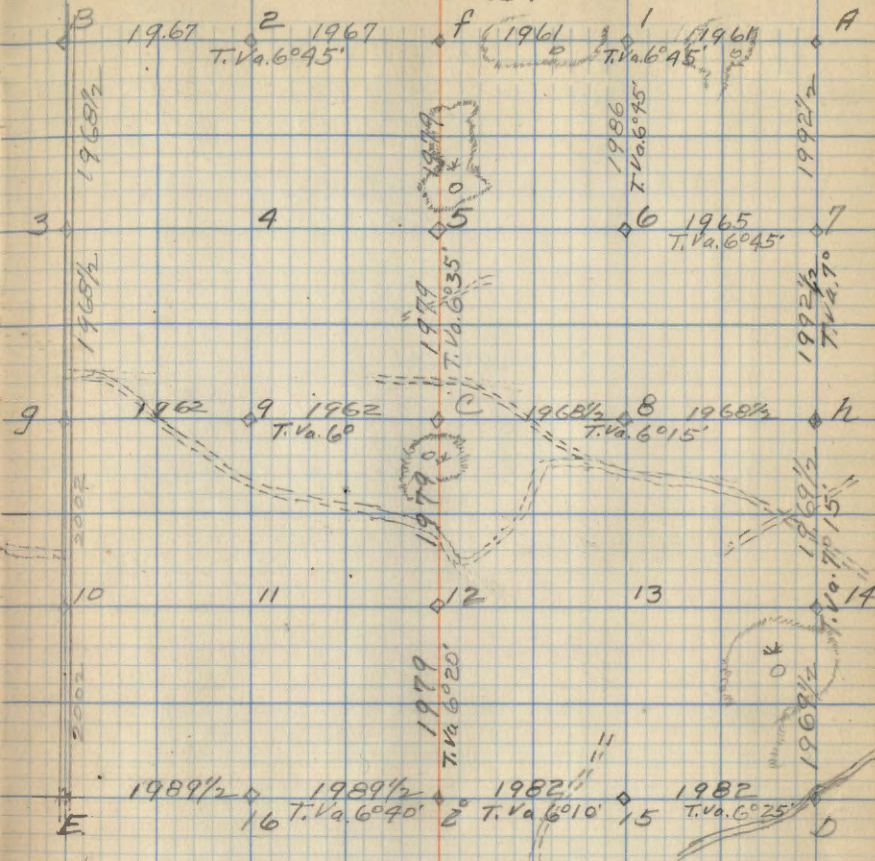 B 1967 2 1967 f 1961 1 1961 A
T.Va.6°45' T.Va.6°45'
1968½ 1979 1986 T.Va.6°45' 1992½
3 4 5 6 1965 7
T.Va.6°45'
1968½ 1979 T.Va.6°35' 1992½ T.Va.7°
g 1962 9 1962 C 1968½ 8 1968½ h
T.Va.6° T.Va.6°15'
2002 1979 1969½ T.Va.7°15'
10 11 12 13 14
2002 1979 T.Va 6°20' 1969½
1989½ 1989½ 1982 1982
E 16 T.Va.6°40' i T.Va.6°10' 15 T.Va.6°25' D